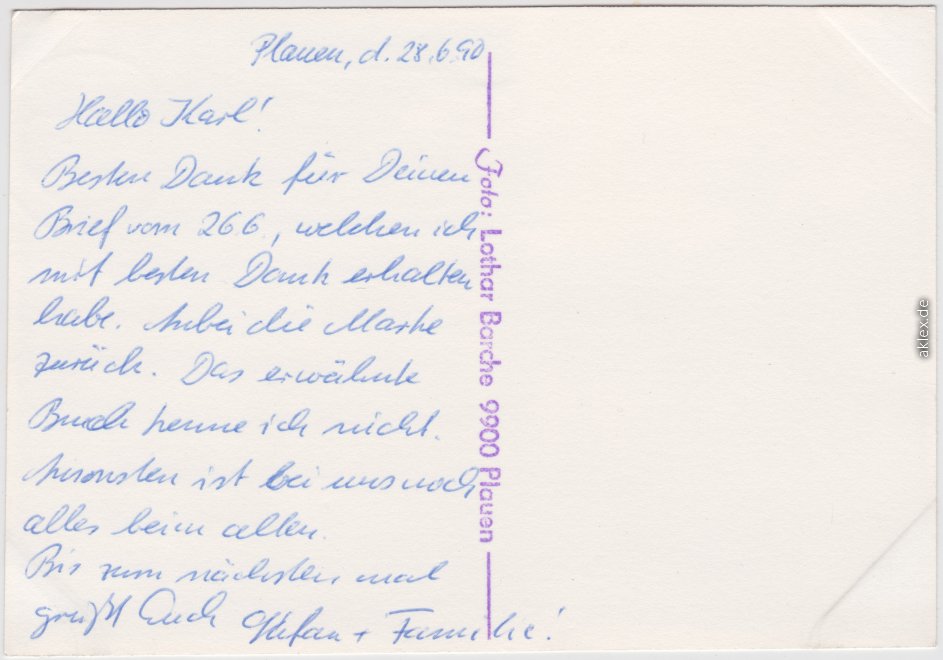 Plauen, d. 28.6.90
Hallo Karl!
Besten Dank für Deinen
Brief vom 26.6., welchen ich
mit besten Dank erhalten
habe. Anbei die Marke
zurück. Das erwähnte
Buch kenne ich nicht.
Ansonsten ist bei uns noch
alles beim alten.
Bis zum nächsten mal
grüßt Euch Stefan + Familie!
Foto: Lothar Barche 9900 Plauen
aklex.de